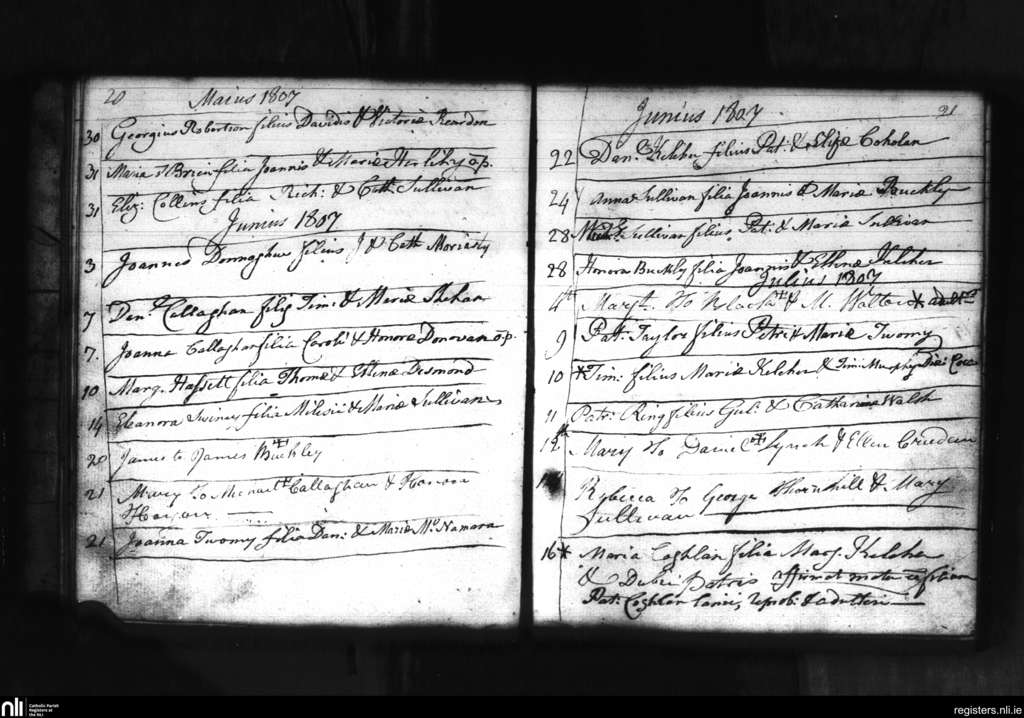 20 Maius 1807
30 Georgius Robertson filius Davidis & Victoriæ Reardon
31 Maria O Brien filia Joannis & Mariæ Herlihy op.
31 Eliz: Collins filia Rich: & Cath Sullivan
Junius 1807
3 Joannes Donnaghue filius J & Cath Moriarty
7 Den. Callaghan filiq Tim: & Mariæ Shehan
7. Joanna Callaghan filia Caroli & Honoræ Donovan o.p.
10 Marg. Hassett filia Thomæ & Ellinæ Desmond
14 Eleanora Swiney filia Milesii & Mariæ Sullivan
20 James to James Buckley
21 Mary to Michael Callaghan & Honora
21 Joanna Twomy filia Dan: & Mariæ McNamara
Junius 1807 21
22 Dan. filius Pat: & Elisæ Coholan
24 Anna Sullivan filia Joannis & Mariæ Buckley
28 Sullivan filius Pat: & Mariæ Sullivan
28 Honora Buckly filia Joannis & Ellinæ Kelcher
Julius 1807
4th Mary to & M. Walton
9 Pat: Taylor filius Petri & Mariæ Twomy
10 *Tim: filius Mariæ Kelcher & Tim: Murphy
11 Patr: Ring filius Gul: & Catharina Walsh
12th Mary To Daniel Lynch & Ellen Creedan
Rebecca To George Thornhill & Mary
Sullivan
16* Maria Coghlan filia Marg. Kelcher
& Dubii Patris
Pat: Coghlan
nli Catholic Parish Registers at the NLI
registers.nli.ie